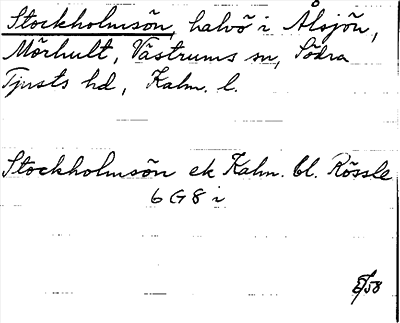 Stockholmsön, halvö i Ålsjön,
Mörhult, Västrums sn, Södra
Tjusts hd, Kalm. l.
Stockholmsön ek Kalm. bl. Rössle
6 G 8 i
/58